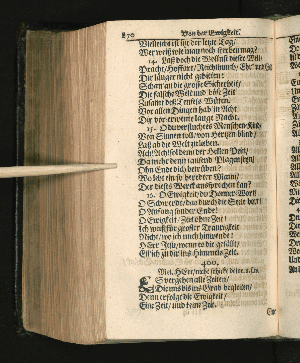 870 Von der Ewigkeit.
Vielleicht ist heut der letzte Tag/
Wer weiß wie man noch sterben mag?
14. Laß doch die Wollust dieser Welt/
Pracht/Hoffart/Reichthumb/Ehr und Geld
Dir länger nicht gebieten:
Schau an die grosse Sicherheit/
Die falsche Welt und böse Zeit
Zusamt deß Teufels Wüten.
Vor allen Dingen hab in Acht
Die vor erwente lange Nacht.
15. O du verfluchtes Menschen-Kind/
Von Sinnen toll/von Hertzen blind/
Laß ab die Welt zu lieben.
Ach! Ach! sol denn der Hellen Pein/
Da mehr denn tausend Plagen seyn/
Ohn Ende dich betrüben?
Wo lebt ein so beredter Mann/
Der dieses Werck aussprechen kan?
16. O Ewigkeit du Donner-Wort/
O Schwerdt/das durch die Seele bort/
O Anfang sonder Ende!
O Ewigkeit/Zeit ohne Zeit/
Ich weiß für grosser Traurigkeit
Nicht/wo ich mich hinwende:
HErr Jesu/wenn es dir gefällt/
Eil ich zu dir ins Himmels Zelt.
400.
Mel. HErr/nicht schicke deine
ES vergehen alle Zeiten/
Denn erfolgt die Ewigkeit/
Eine Zeit/und keine Zeit.